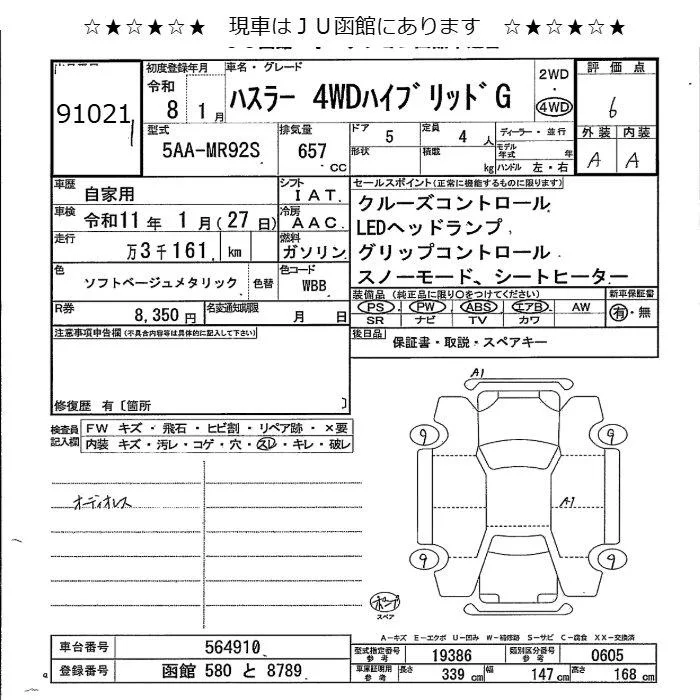 ☆★☆★☆★　現車はＪＵ函館にあります　☆★☆★☆★
91021
初度登録年月
令和
8 1月
車名・グレード
ハスラー 4WDハイブリッドG
2WD
・
4WD
評価点
6
外装 内装
A A
型式
5AA-MR92S
排気量
657 CC
ドア 5
定員 4 人
形状
積載 kg
ディーラー・並行
モデル年式 年
ハンドル 左・右
車歴
自家用
シフト
IAT
車検
令和11年 1月(27日)
冷房
AAC
走行
万3千161 km
燃料
ガソリン
色
ソフトベージュメタリック
色替
色コード
WBB
R券
8,350円
名変通知期限
月 日
セールスポイント(正常に機能するものに限ります)
クルーズコントロール
LEDヘッドランプ
グリップコントロール
スノーモード、シートヒーター
装備品 (純正品に限り○をつけてください)
PS PW ABS エアB AW
SR ナビ TV カワ
新車保証書
有・無
後日品
保証書・取説・スペアキー
注意事項申告欄(不具合内容等は具体的に記入して下さい)
修復歴 有〔箇所 〕
検査員記入欄
FW キズ・飛石・ヒビ割・リペア跡・×要
内装 キズ・汚レ・コゲ・穴・スレ・キレ・破レ
オーディオレス
A1
9
9
A1
9
9
ポンプ
スペア
A-キズ E-エクボ U-凹み W-補修跡 S-サビ C-腐食 XX-交換済
車台番号
564910
登録番号
函館 580 と 8789
型式指定番号
参考
19386
類別区分番号
参考
0605
車庫証明用
参考
長さ 339 cm
幅 147 cm
高さ 168 cm